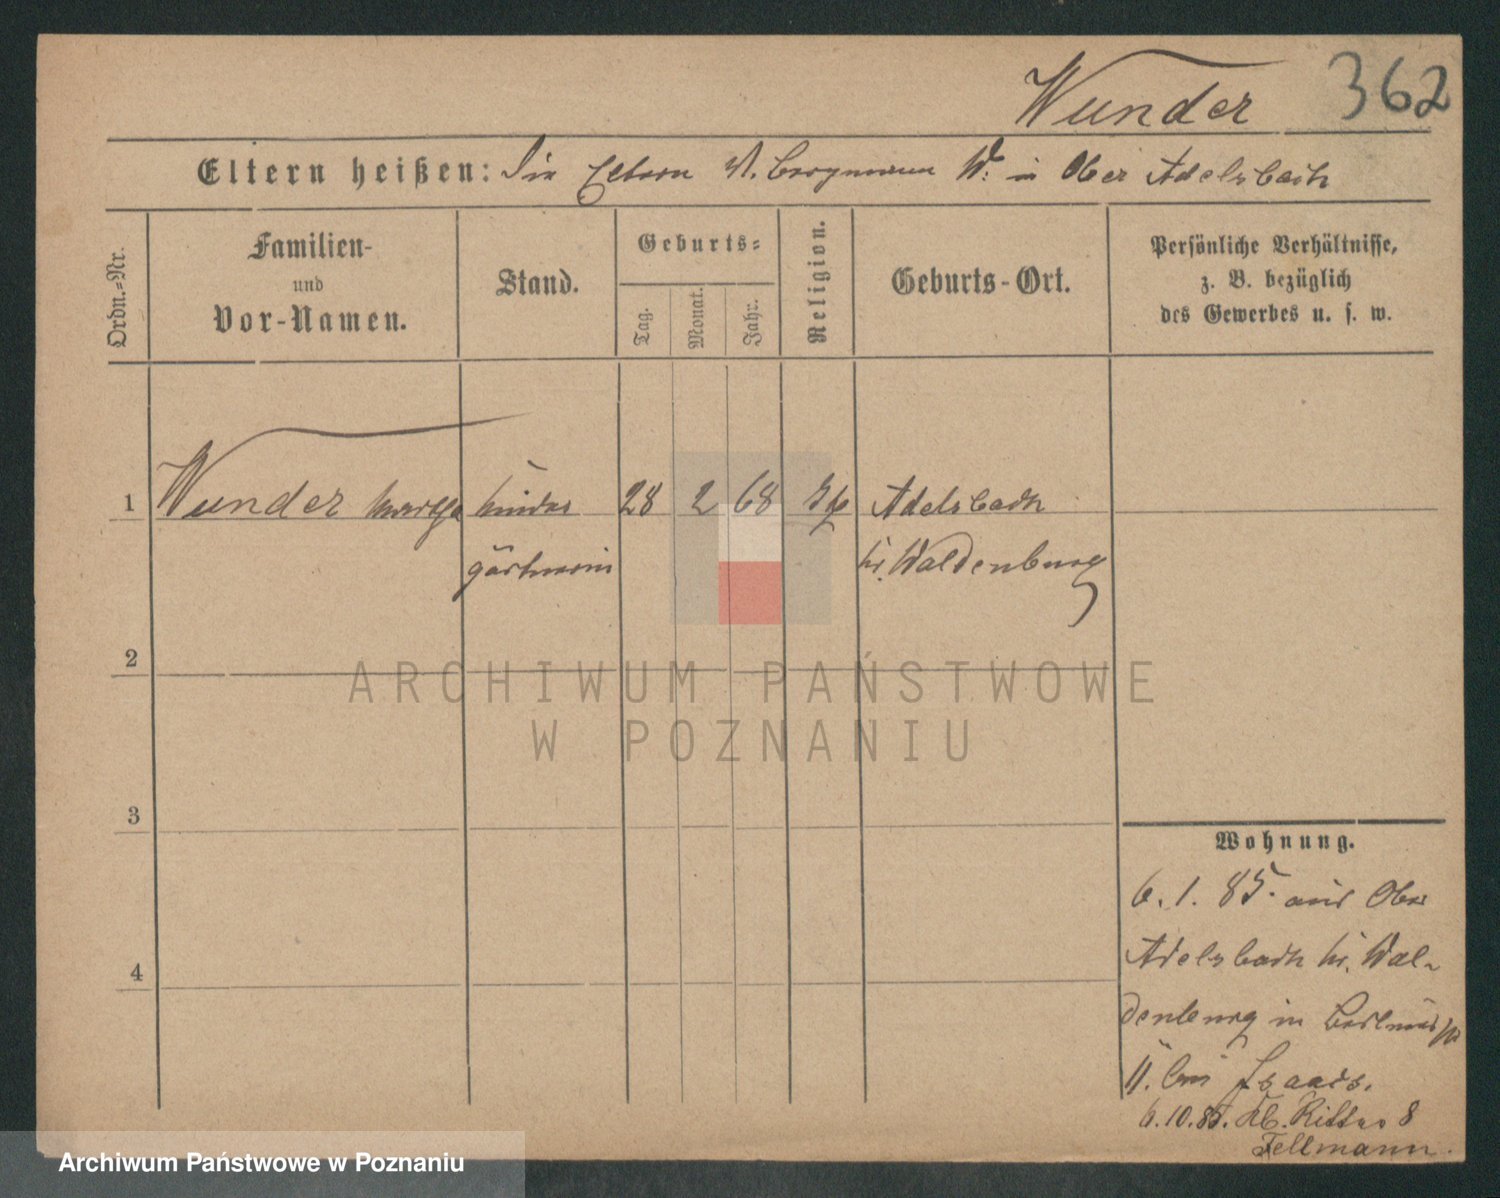 Wunder 362
Eltern heißen: Die Eltern Bergmann W. in Ober Adelsbach
Ordn.-Nr.
Familien-
und
Vor-Namen.
Stand.
Geburts-
Tag.
Monat.
Jahr.
Religion.
Geburts-Ort.
Persönliche Verhältnisse,
z. B. bezüglich
des Gewerbes u. s. w.
1 Wunder Martha Kinder 28 2 68 Adelsbach
gärtnerin Kr. Waldenburg
2
3
4
Wohnung.
6. 1. 85. aus Ober
Adelsbach Kr. Wal-
denburg in
11. bei Isaacs.
6.10.85. Kl. Ritter 8
Fellmann.
ARCHIWUM PAŃSTWOWE
W POZNANIU
Archiwum Państwowe w Poznaniu